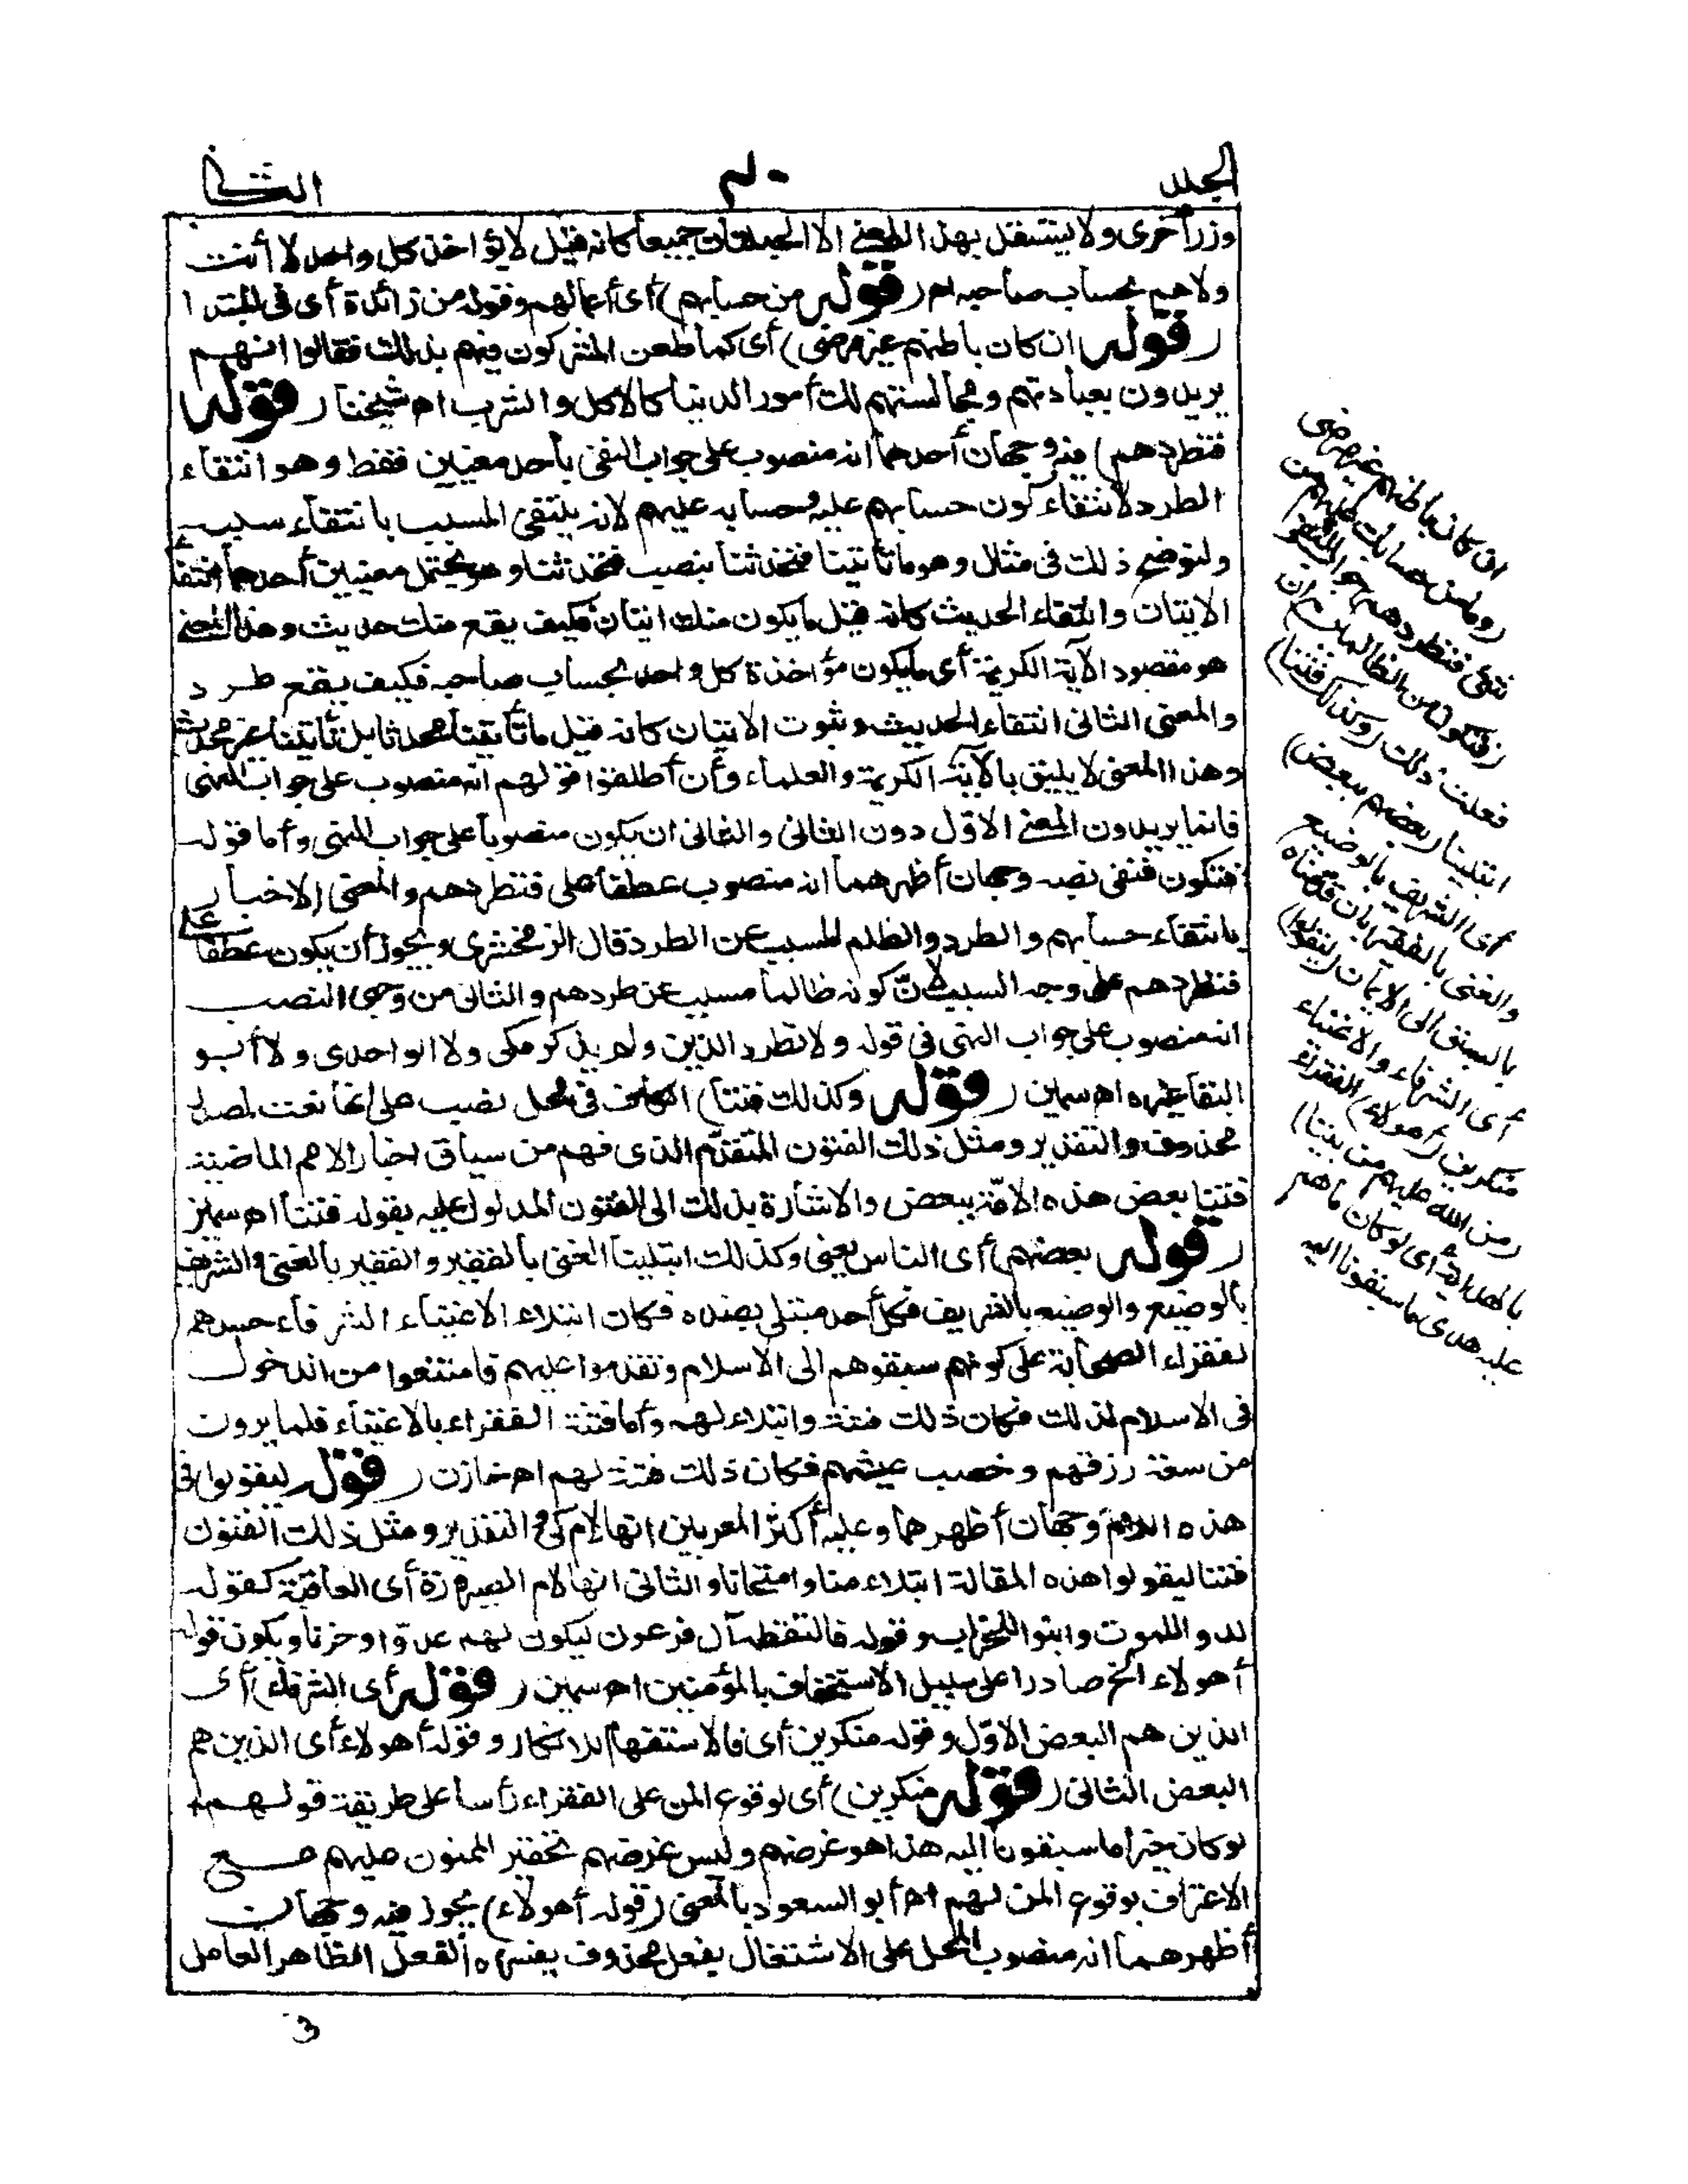 الجلد
٤٠
الثانى
وزر أخرى ولا يستقل بهذا المعنى الا الجملتان جميعا كانه قيل لا يؤاخذ كل واحد لا أنت
ولا هم بحساب صاحبه اه (قوله من حسابهم) أى أعمالهم وقوله من زائدة أى فى المبتدا
(قوله ان كان باطنهم غير مرضى) أى كما طعن المشركون فيهم بذلك فقالوا انهم
يريدون بعبادتهم ومجالستهم لك أمور الدنيا كالاكل والشرب اه شيخنا (قوله
فتطردهم) فيه وجهان أحدهما انه منصوب على جواب النفى بأحد معنيين فقط وهو انتفاء
الطرد لانتفاء كون حسابهم عليه وحسابه عليهم لانه ينتفى المسبب بانتفاء سببه
ولنوضح ذلك فى مثال وهو ما تأتينا فتحدثنا بنصب فتحدثنا وهو يحتمل معنيين أحدهما انتفاء
الاتيان وانتفاء الحديث كانه قيل ما يكون منك اتيان فكيف يقع منك حديث وهذا المعنى
هو مقصود الآية الكريمة أى ما يكون مؤاخذة كل واحد بحساب صاحبه فكيف يقع طرد
والمعنى الثانى انتفاء الحديث وثبوت الاتيان كانه قيل ما تأتينا محدثا بل تأتينا غير محدث
وهذا المعنى لا يليق بالآية الكريمة والعلماء وأن أطلقوا قولهم انه منصوب على جواب النفى
فانما يريدون المعنى الاول دون الثانى والثانى ان يكون منصوبا على جواب النهى وأما قوله
فتكون ففى نصبه وجهان أظهرهما انه منصوب عطفا على فتطردهم والمعنى الاخبار
بانتفاء حسابهم والطرد والظلم المسبب عن الطرد قال الزمخشرى ويجوز أن يكون عطفا على
فتطردهم على وجه السبب لان كونه ظالما مسبب عن طردهم والثانى من وجهى النصب
انه منصوب على جواب النهى فى قوله ولا تطرد الذين ولم يذكر مكى ولا الواحدى ولا أبو
البقاء غيره اه سمين (قوله وكذلك فتنا) الكاف فى محل نصب على انها نعت لمصدر
محذوف والتقدير ومثل ذلك الفتون المتقدم الذى فهم من سياق اخبار الامم الماضية
فتنا بعض هذه الامة ببعض والاشارة بذلك الى الفتون المدلول عليه بقوله فتنا اه سمين
(قوله بعضهم) أى الناس يعنى وكذلك ابتلينا الغنى بالفقير والفقير بالغنى والشريف
بالوضيع والوضيع بالشريف فكل أحد مبتلى بضده فكان ابتلاء الاغنياء الشرفاء حسدهم
لفقراء الصحابة على كونهم سبقوهم الى الاسلام وتقدموا عليهم فامتنعوا من الدخول
فى الاسلام لذلك فكان ذلك فتنة وابتلاء لهم وأما فتنة الفقراء بالاغنياء فلما يرون
من سعة رزقهم وخصب عيشهم فكان ذلك فتنة لهم اه خازن (قوله ليقولوا) فى
هذه اللام وجهان أظهرهما وعليه أكثر المعربين انها لام كى والتقدير ومثل ذلك الفتون
فتنا ليقولوا هذه المقالة ابتلاء منا وامتحانا والثانى انها لام الصيرورة أى العاقبة كقوله
لدوا للموت وابنوا للخراب وقوله فالتقطه آل فرعون ليكون لهم عدوا وحزنا ويكون قوله
أهولاء الخ صادرا على سبيل الاستخفاف بالمؤمنين اه سمين (قوله أى الشرفاء) أى
الذين هم البعض الاول وقوله منكرين أى فالاستفهام للانكار وقوله أهولاء أى الذين هم
البعض الثانى (قوله منكرين) أى لوقوع المن على الفقراء رأسا على طريقة قولهم
لو كان خيرا ما سبقونا اليه هذا هو غرضهم وليس غرضهم تحقير الممنون عليهم مع
الاعتراف بوقوع المن لهم اه أبو السعود بالمعنى (قوله أهولاء) يجوز فيه وجهان
أظهرهما انه منصوب المحل على الاشتغال بفعل محذوف يفسره الفعل الظاهر العامل
ان كان باطنهم غير مرضى
(وما من حسابك عليهم من
شئ فتطردهم) جواب النفى
(فتكون من الظالمين) ان
فعلت ذلك (وكذلك فتنا)
ابتلينا (بعضهم ببعض)
أى الشريف بالوضيع
والغنى بالفقير بان قدمناه
بالسبق الى الايمان (ليقولوا)
أى الشرفاء والاغنياء
منكرين (أهولاء) الفقراء
(من الله عليهم من بيننا)
بالهداية أى لو كان ما هم
عليه هدى ما سبقونا اليه